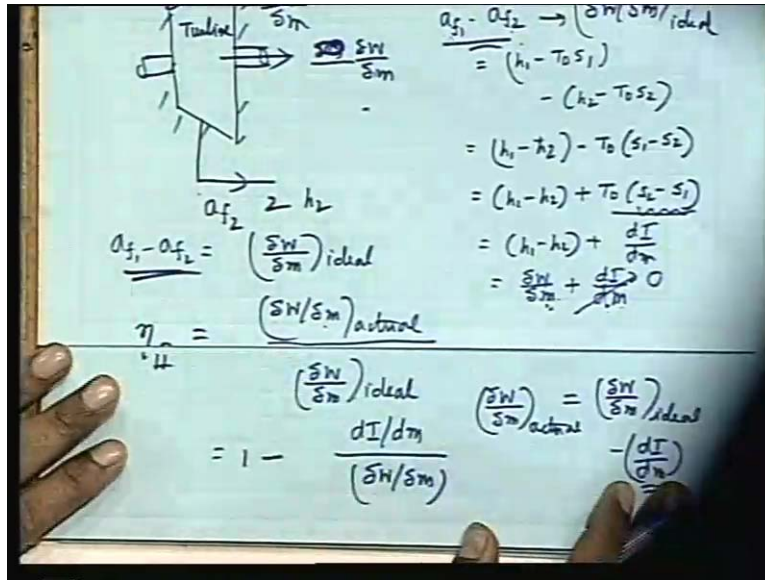 Turbine
δm
δW/δm
a_f2 2 h2
a_f1 - a_f2 = (δW/δm)ideal
η_II = (δW/δm)actual
(δW/δm)ideal
= 1 - dI/dm
(δW/δm)
a_f1 - a_f2 → (δW/δm)ideal
= (h1 - T0 s1)
- (h2 - T0 s2)
= (h1 - h2) - T0 (s1 - s2)
= (h1 - h2) + T0 (s2 - s1)
= (h1 - h2) + dI/dm
= δW/δm + dI/dm 0
(δW/δm)actual = (δW/δm)ideal
- (dI/dm)